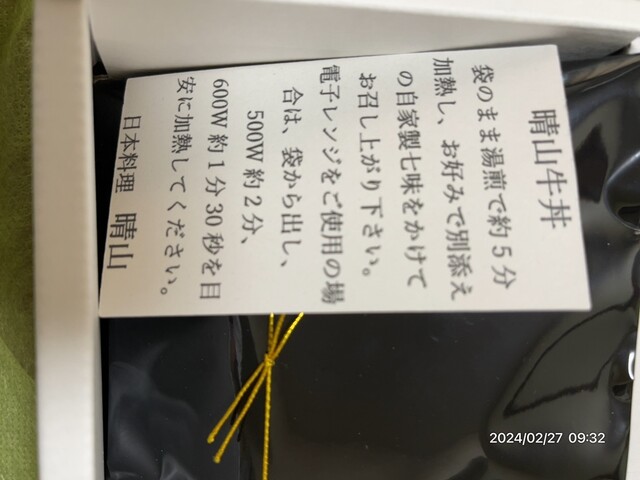 晴山牛丼
袋のまま湯煎で約5分
加熱し、お好みで別添え
の自家製七味をかけて
お召し上がり下さい。
電子レンジをご使用の場
合は、袋から出し、
500W 約2分、
600W 約1分30秒を目
安に加熱してください。
日本料理 晴山
2024/02/27 09:32